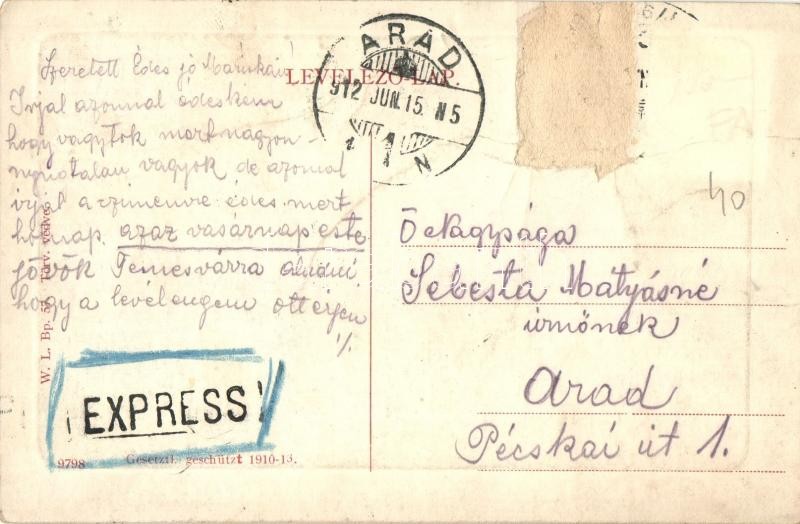 LEVELEZŐ-LAP.
ARAD
912 JUN. 15. N5
1 N
Szeretett Édes jó
Irjal azonnal édeském
hogy vagytok mert nagyon
nyugtalan vagyok de azonnal
irjál a czimemre édes mert
holnap azaz vasárnap este
jövök Temesvárra aludni
hogy a levél engem ott érjen
1/.
W. L. Bp. Törv. védve.
EXPRESS
9798 Gesetzl. geschützt 1910-13.
40
Ő Nagysága
Sebesta Mátyásné
úrnőnek
Arad
Pécskai út 1.